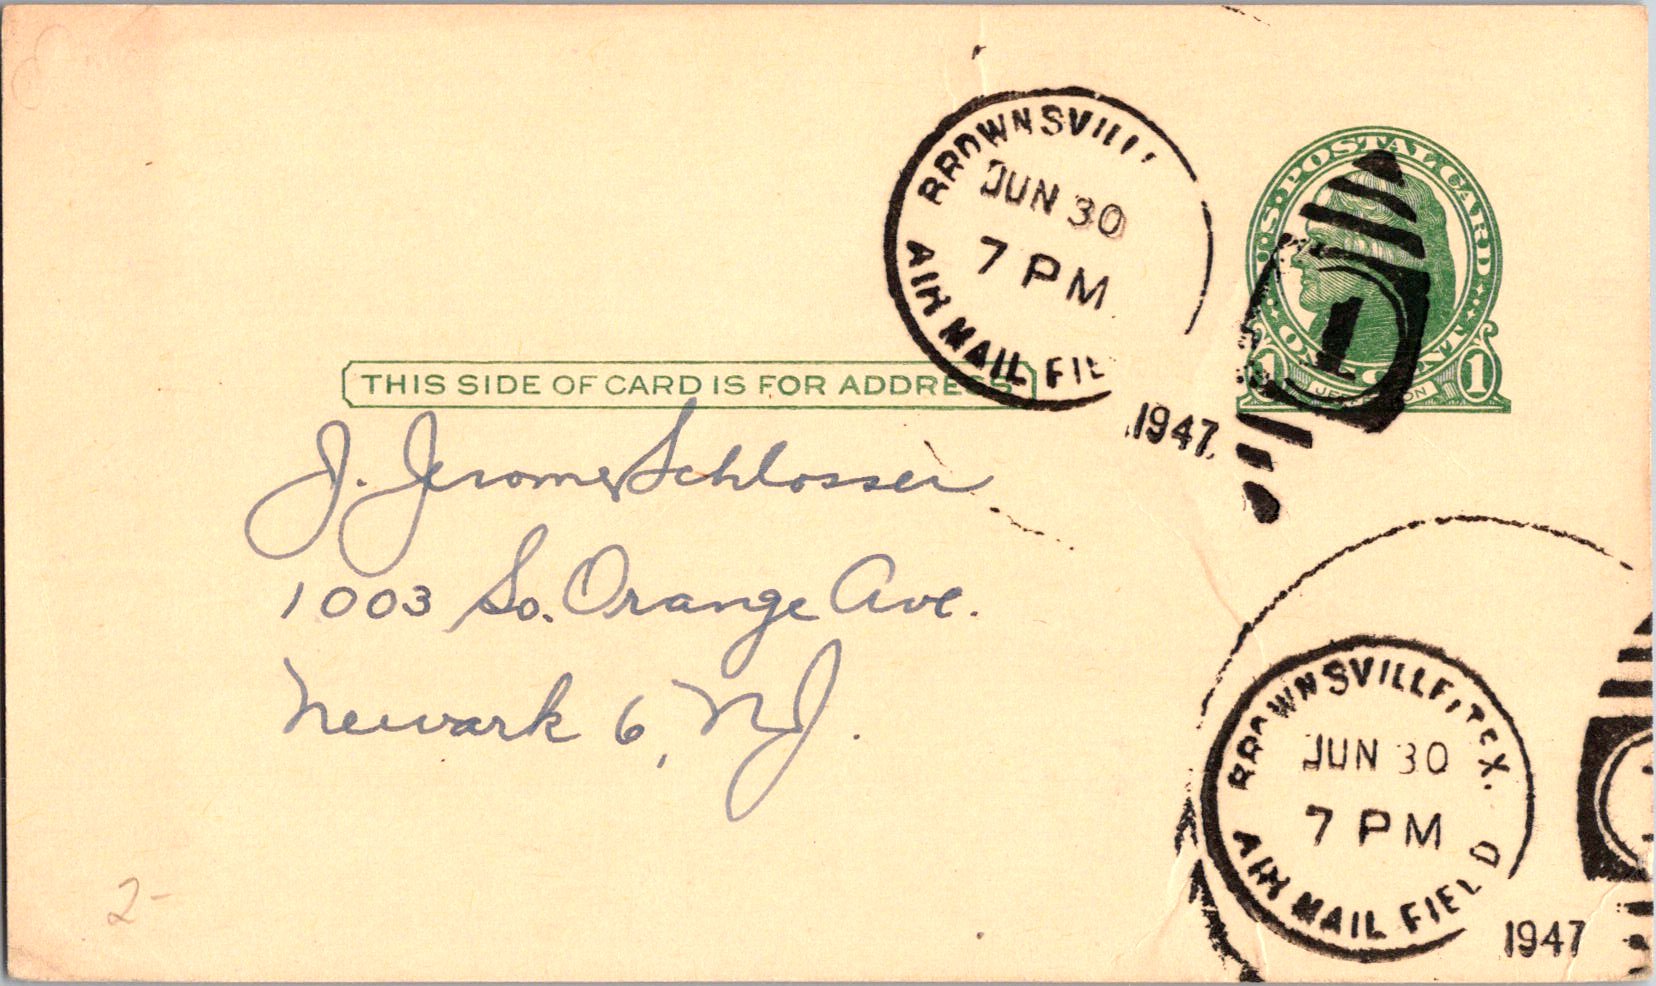 U.S. POSTAL CARD
1 ONE CENT 1
JEFFERSON
BROWNSVILL
JUN 30
7 PM
AIR MAIL FIE
1947
1
THIS SIDE OF CARD IS FOR ADDRESS
J. Jerome Schlosser
1003 So. Orange Ave.
Newark 6, NJ.
BROWNSVILLE, TEX.
JUN 30
7 PM
AIR MAIL FIELD
1947
2-